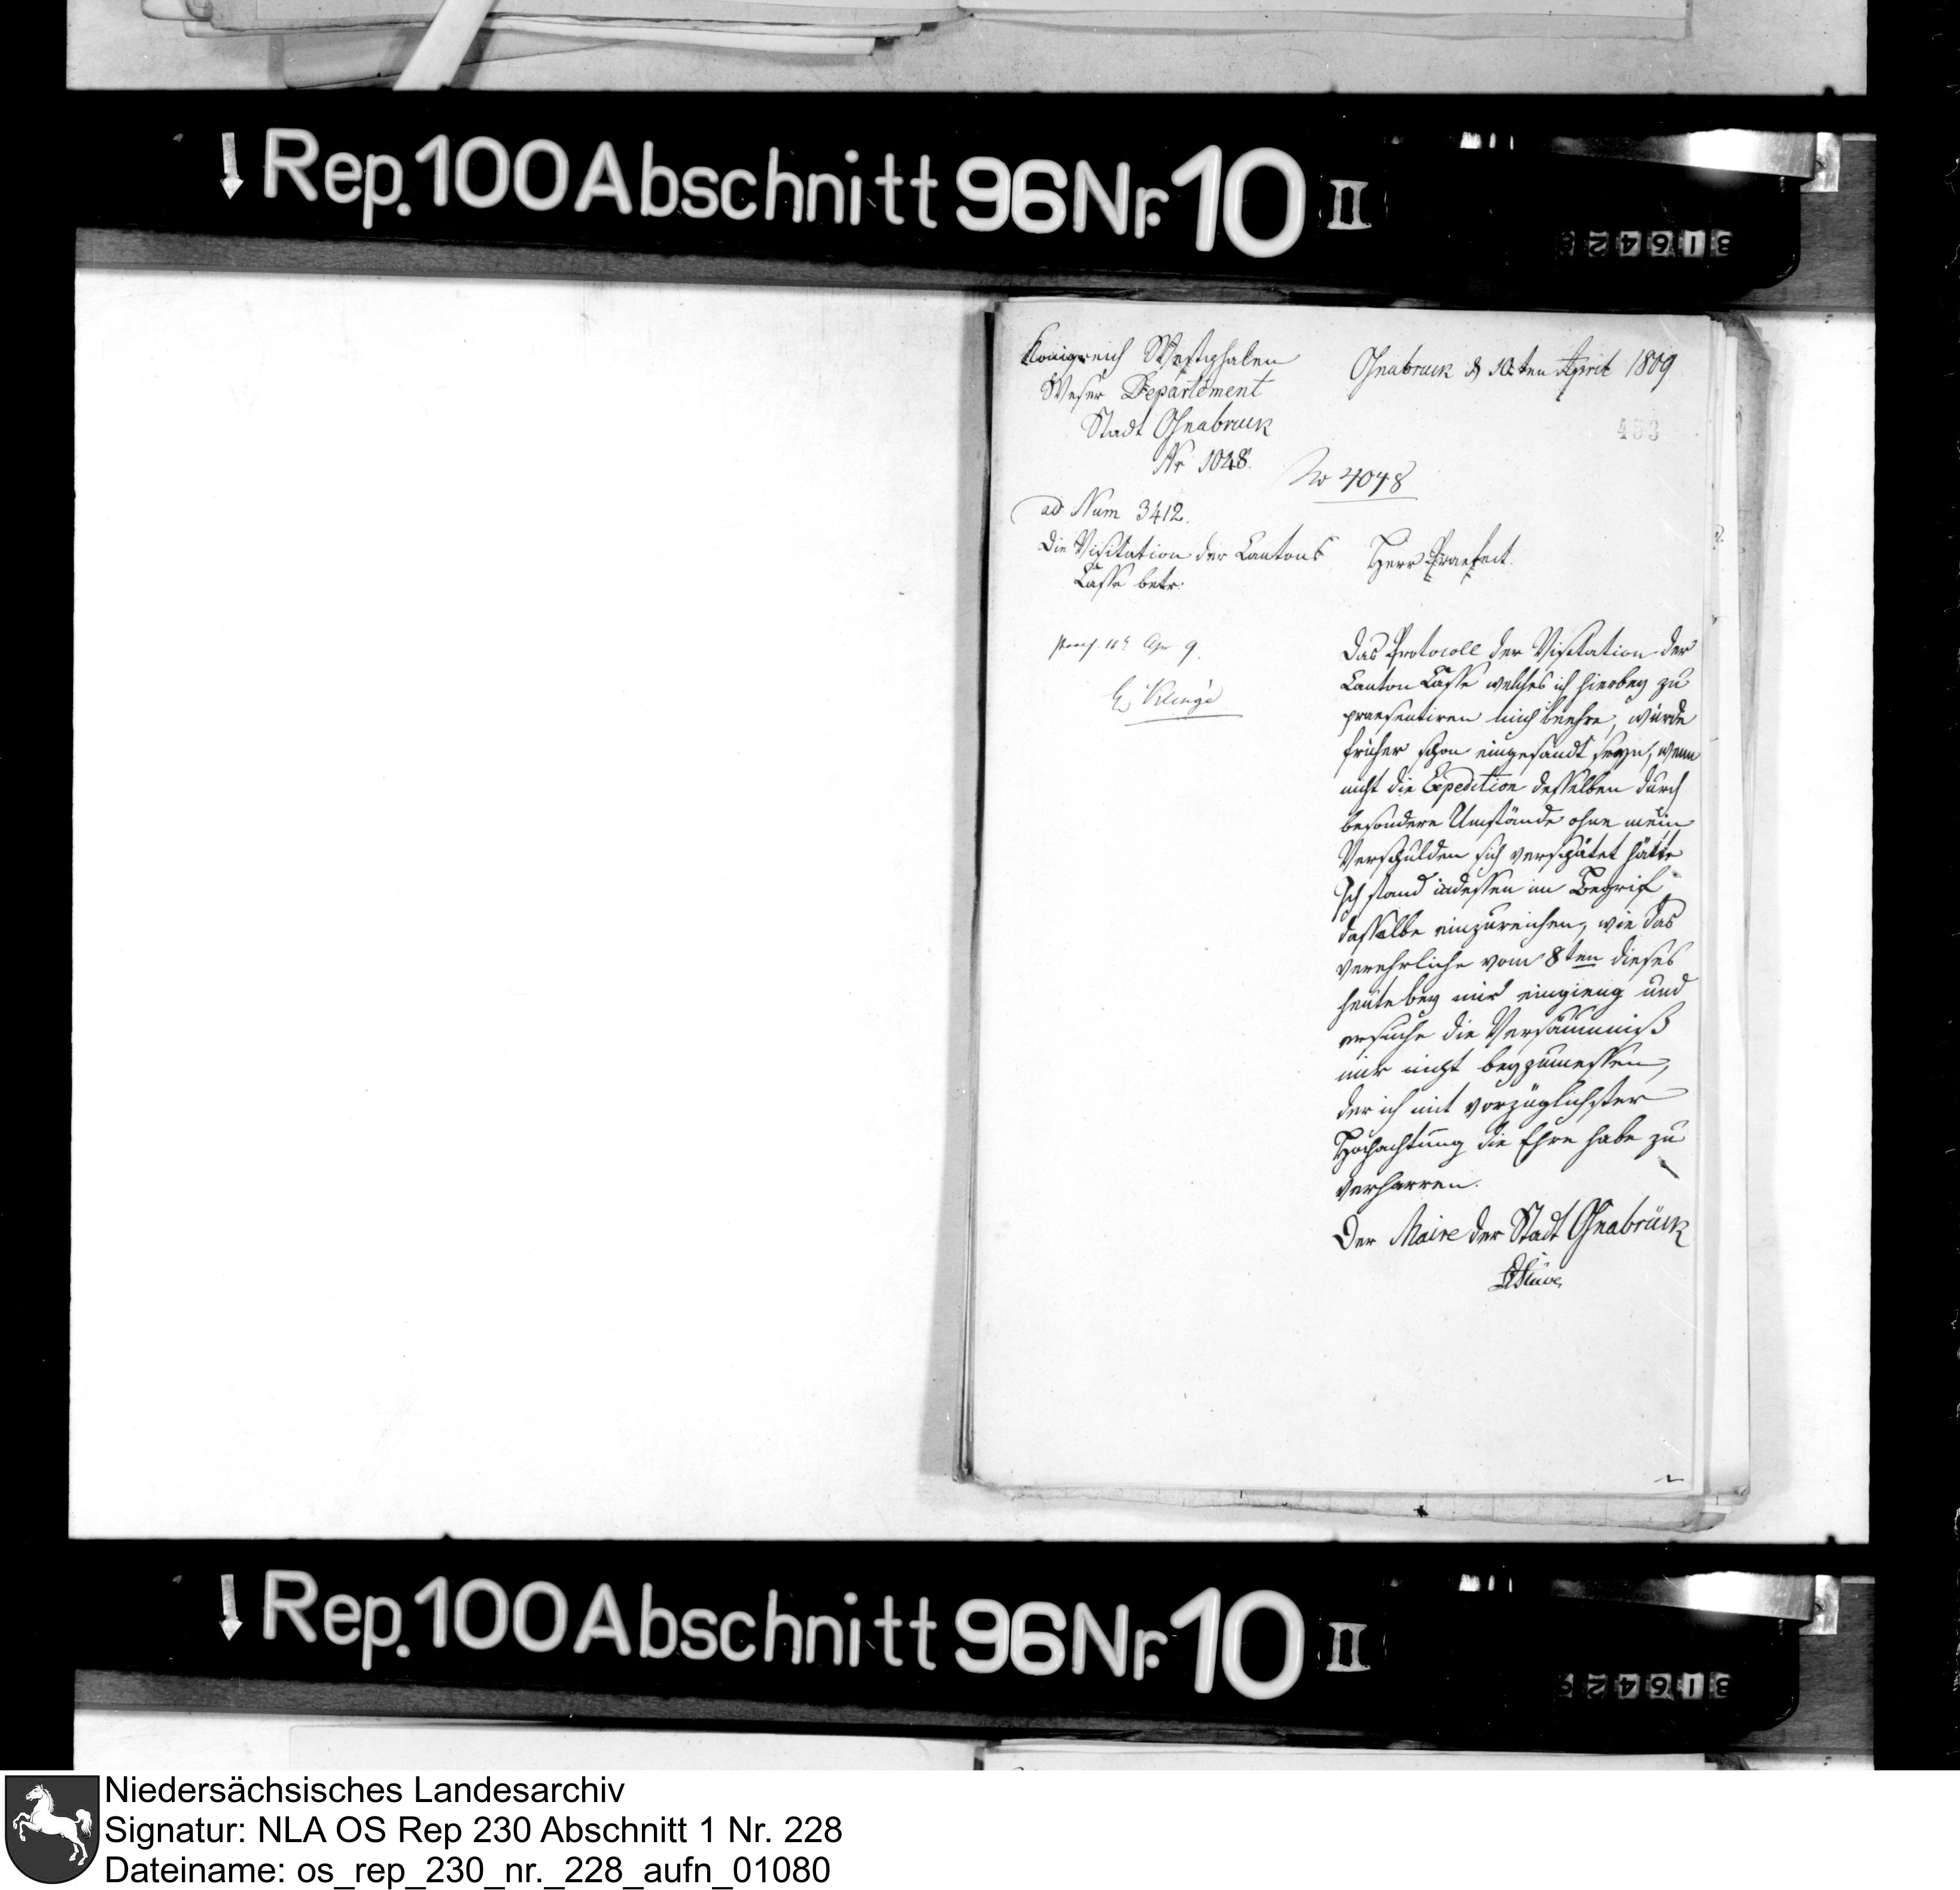 Rep. 100 Abschnitt 96 Nr. 10 II
316423
Königreich Westphalen
Weser Departement
Stadt Osnabruck
Nr 1048.
Osnabruck d 10ten April 1809
No 4048
ad Num 3412.
Die Visitation der Cantons
Casse betr.
praes. 11t Apr 9.
Klinge
Herr Praefect.
Das Protocoll der Visitation der
Canton Casse welches ich hierbey zu
praesentiren mich beehre, würde
früher schon eingesandt seyn, wenn
nicht die Expedition desselben durch
besondere Umstände ohne mein
Verschulden sich verspätet hätte
Ich stand indessen im Begrif
dasselbe einzureichen, wie das
verehrliche vom 8ten dieses
heute bey mir eingieng und
ersuche die Versäumniß
mir nicht beyzumessen,
der ich mit vorzüglichster
Hochachtung die Ehre habe zu
verharren.
Der Maire der Stadt Osnabrück
Stüve
Rep. 100 Abschnitt 96 Nr. 10 II
Niedersächsisches Landesarchiv
Signatur: NLA OS Rep 230 Abschnitt 1 Nr. 228
Dateiname: os_rep_230_nr._228_aufn_01080